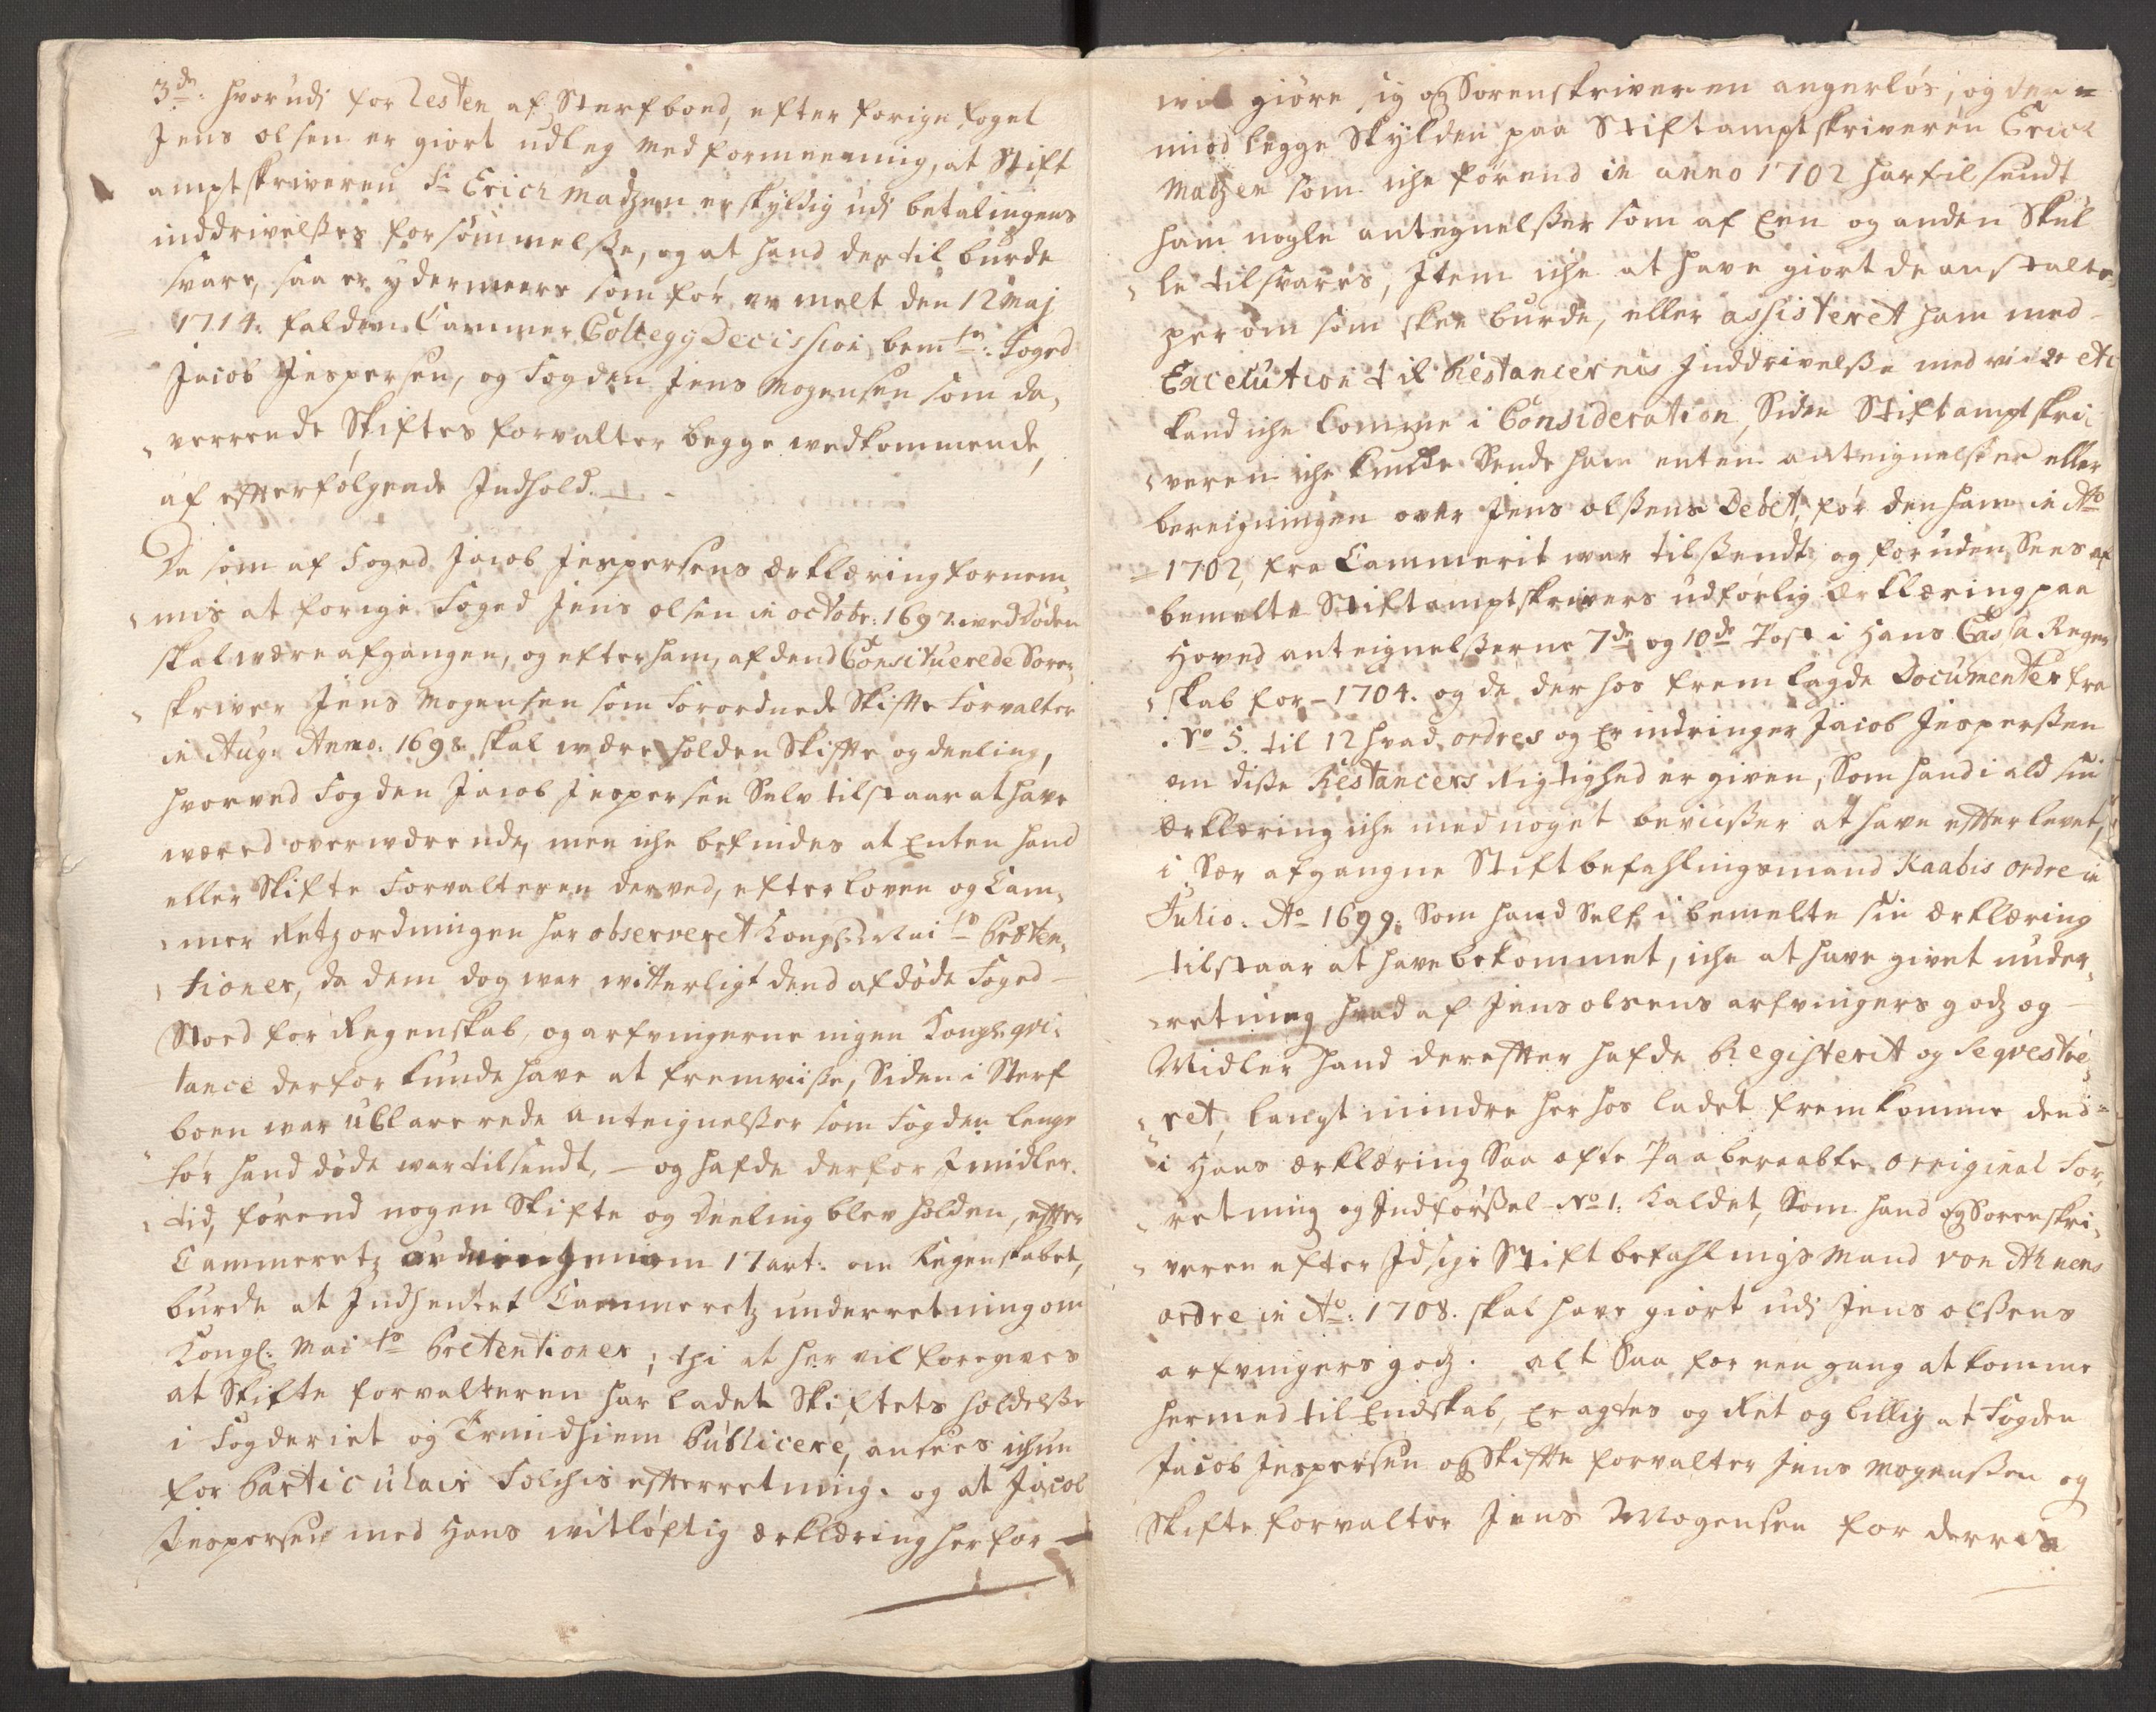 3de: hvorudi for Resten af Sterfboed, efter forige foget
Jens olsen er giort udleg med formeening, at Stift
amptskriveren Sr Erich Madzen er skyldig udi betalingens
inddrivelßes forsömmelße, og at hand der til burde
svare, saa er ydermeere som før er melt den 12 Maj
1714. falden Cammer Collegij Decission bemte: Foged
Jacob Jespersen, og Fogden Jens Mogensen som da„
„verrende Skiftes forvalter begge vedkommende,
af effterfølgende Indhold.
Da som af Foged Jacob Jespersens Erklæring fornem„
„mis at forige Foged Jens olsen in octobr: 1697. ved Døden
skal være afgangen, og efter ham, af dend Consituerede Soren„
„skriver Jens Mogensen som Forordnede Skiffte Forvalter
in Aug: Anno. 1698. skal være holden Skiffte og deeling,
hvorved Fogden Jacob Jespersen Selv tilstaar at have
været overværende, men iche befindes at Enten hand
eller Skifte Forvalteren derved, efter loven og Cam„
„mer Retz ordningen har observeret Kongl: Maits Præten„
„tioner, da dem dog war witterligt dend afdøde Foged
Stoed for Regenskab, og arfvingerne ingen Kongl: qvi„
tance derfor kunde have at fremviiße, Siden i Sterf
boen war uclarerede antegnelßer som Fogden lenge
før hand døde war tilsendt, – og hafde derfor Imidler„
„tid, førend nogen Skifte og Deeling blev holden, effter
Cammeretz 17 art: om Regenskabet,
burde at Indhentet Cammeretz underretning om
Kongl: Maits Prætentioner; thi at her vil foregives
at Skifte forvalteren har ladet Skiftets holdelße
i Fogderiet og Trundhiem Publicere, ansees ichun
for Particulair Folchis effterretning. og at Jacob
Jespersen med Hans vitløftig Erklæring herfor
wil giøre sig og Sorenskriveren angerløs, og der=
imod legge Skylden paa Stiftamptskriveren Erich
Madzen som iche førend in anno 1702 har tilsendt
ham nogle antegnelßer som af Een og anden Skul
„le tilsvares, Item iche at have giort de anstalter
her om som skee burde, eller assisteret ham med
Execution til Restancernis Inddrivelße med videre etc
kand iche Komme i Consideration, Siden Stiftamptskri„
„veren iche kunde Sende ham enten antegnelßer eller
beregningen over Jens olßens Debet, før den ham in Ao
1702, fra Cammerit war tilßendt, og foruden Sees af
bemelte Stiftamptskrivers udførlig Erklæring paa
Hoved antegnelßerne 7de og 10de Post i Hans Cassa Regen
„skab for 1704. og de der hos fremlagde Documenter fra
No 5. til 12 hvad ordres og Erindringer Jacob Jesperßen
om diße Restancers Rigtighed er given, Som hand i ald sin
Erklæring iche med noget beviißer at have effterlevet,
i Sær afgangne Stiftbefahlingsmand Kaabis ordre in
Julio. Ao 1699. Som hand Self i bemelte sin Erklæring
tilstaar at have bekommet, iche at have givet under„
„retning hvad af Jens olsens arfvingers godz og
Midler hand dereffter hafde Registerit og seqvestre„
„ret, langt mindre her hos ladet fremkomme dend
i Hans Erklæring Saa ofte Paaberaabte original For„
„retning og Indførßel No 1. Kaldet, Som hand og Sorenskri„
„veren efter Idsige Stiftbefahlings Mand von Ahnens
ordre in Ao: 1708. skal have giort udi Jens olßens
arfvingers godz. alt Saa for een gang at komme
hermed til Endskab, Eragtes og Ret og billig at Fogden
Jacob Jespersen og Skiffte forvalter Jens Mogenßen og
Skifte forvalter Jens Mogensen for derris